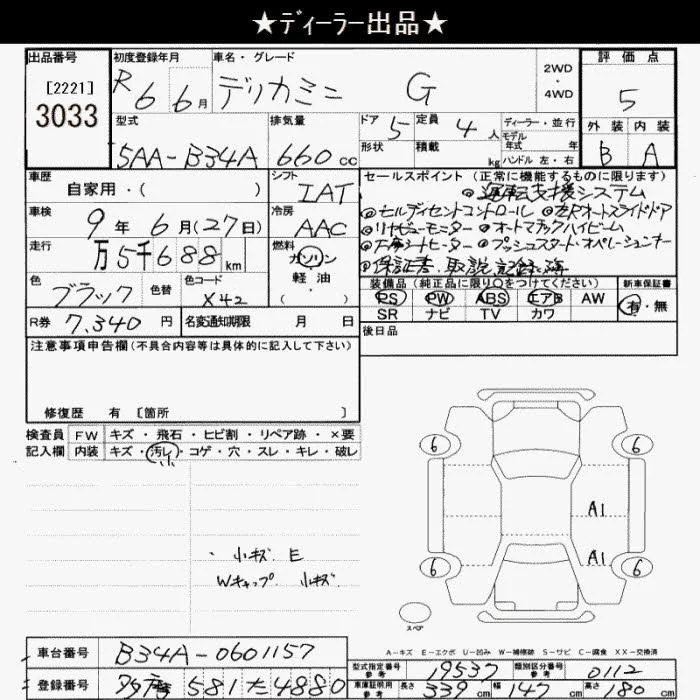 ★ディーラー出品★
出品番号 初度登録年月 車名・グレード 2WD・4WD 評価点
[2221] R6 6月 デリカミニ G 5
3033
型式 排気量 ドア 5 定員 4人 ディーラー・並行 外装 内装
5AA-B34A 660cc 形状 積載 kg モデル年式 年 ハンドル 左・右 B A
車歴 自家用・( ) シフト IAT セールスポイント (正常に機能するものに限ります)
◎運転支援システム
車検 9年6月(27日) 冷房 AAC ◎ヒルディセントコントロール ◎左Rオートスライドドア
走行 万5千688km 燃料 ガソリン・軽油・( ) ◎リヤビューモニター ◎オートマチックハイビーム
◎左右シートヒーター ◎プッシュスタート・オペレーションキー
◎保証書、取説、記録簿
色 ブラック 色替 色コード X42 装備品 (純正品に限り○をつけてください) 新車保証書
PS PW ABS エアB AW 有・無
R券 7,340円 名変通知期限 月 日 SR ナビ TV カワ
注意事項申告欄 (不具合内容等は具体的に記入して下さい) 後日品
修復歴 有 [箇所 ]
検査員 FW キズ・飛石・ヒビ割・リペア跡・×要
記入欄 内装 キズ・汚レ・コゲ・穴・スレ・キレ・破レ
小
6 6
A1
・小キズ E A1
Wキャップ 小キズ 6 6
スペア
A-キズ E-エクボ U-凹み W-補修跡 S-サビ C-腐食 XX-交換済
車台番号 B34A-0601157
型式指定番号 参考 19537 類別区分番号 参考 0112
登録番号 581 た 4880 車庫証明用 参考 長さ 339cm 幅 147cm 高さ 180cm